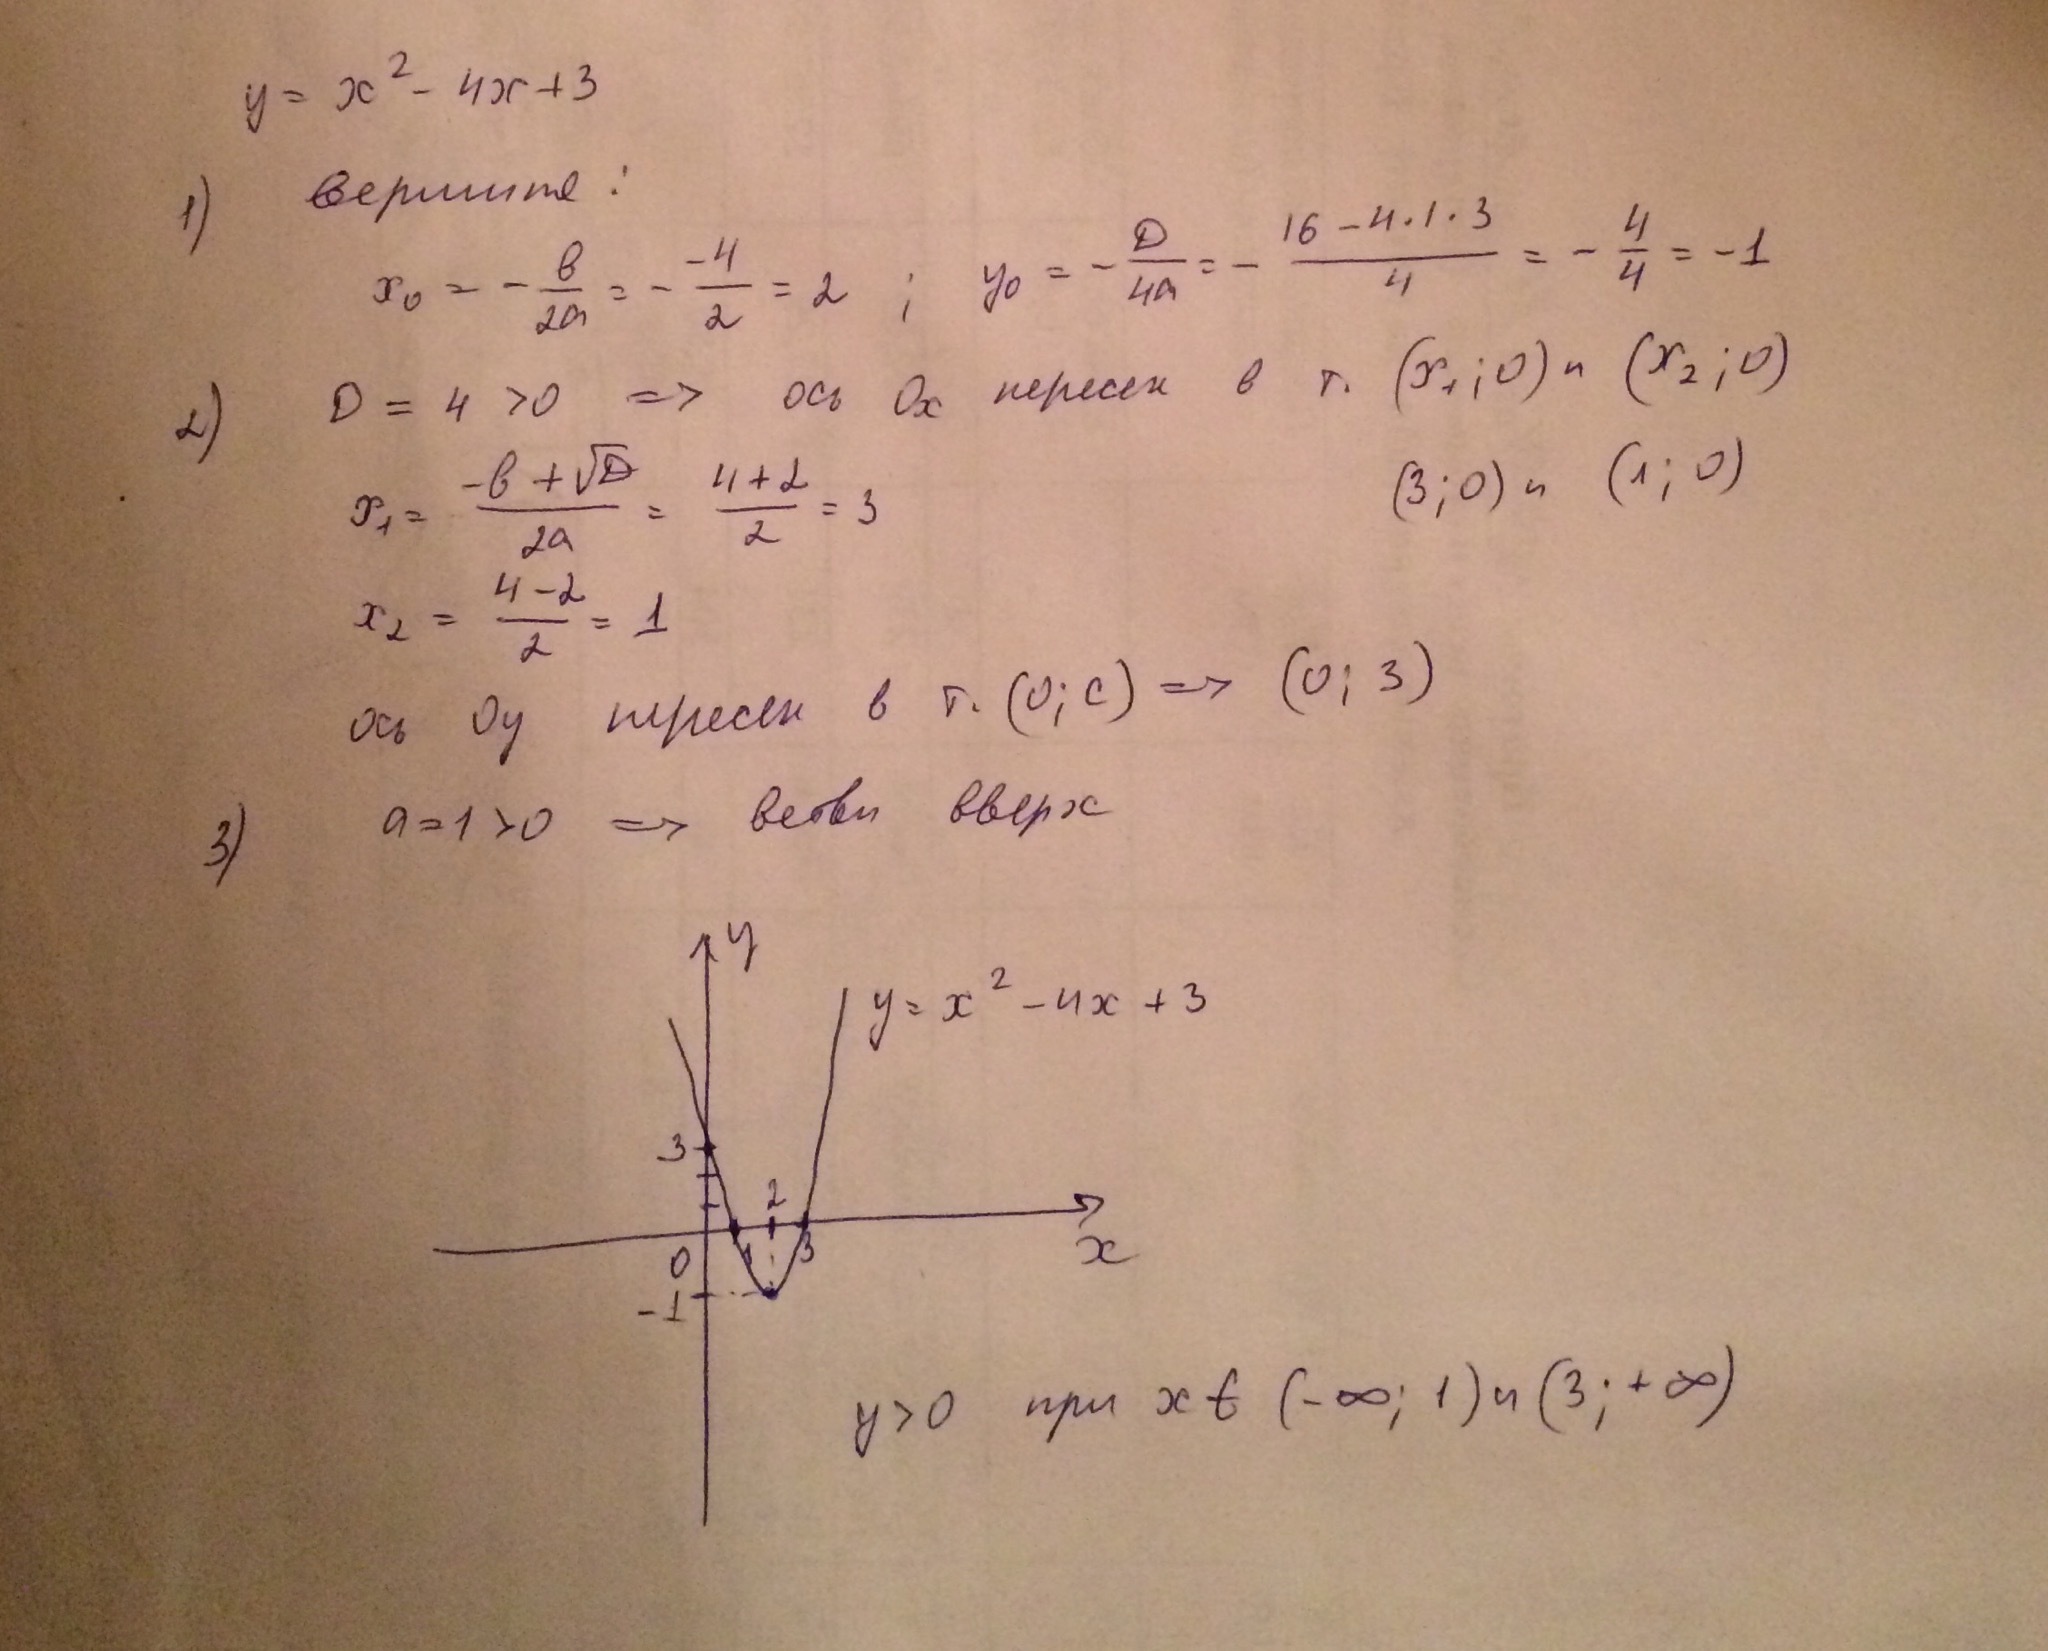 y = x² - 4x + 3
1) вершина :
x₀ = - в/2a = - -4/2 = 2 ; y₀ = - D/4a = - 16 - 4·1·3/4 = - 4/4 = -1
2) D = 4 > 0 => ось Ox пересек в т. (x₁; 0) и (x₂; 0)
(3; 0) и (1; 0)
x₁ = -в + √D/2a = 4+2/2 = 3
x₂ = 4-2/2 = 1
ось Oy пересек в т. (0; c) => (0; 3)
3) a = 1 > 0 => ветви вверх
y
y = x² - 4x + 3
3
2
0
1
3
x
-1
y > 0 при x ∈ (-∞; 1) и (3; +∞)